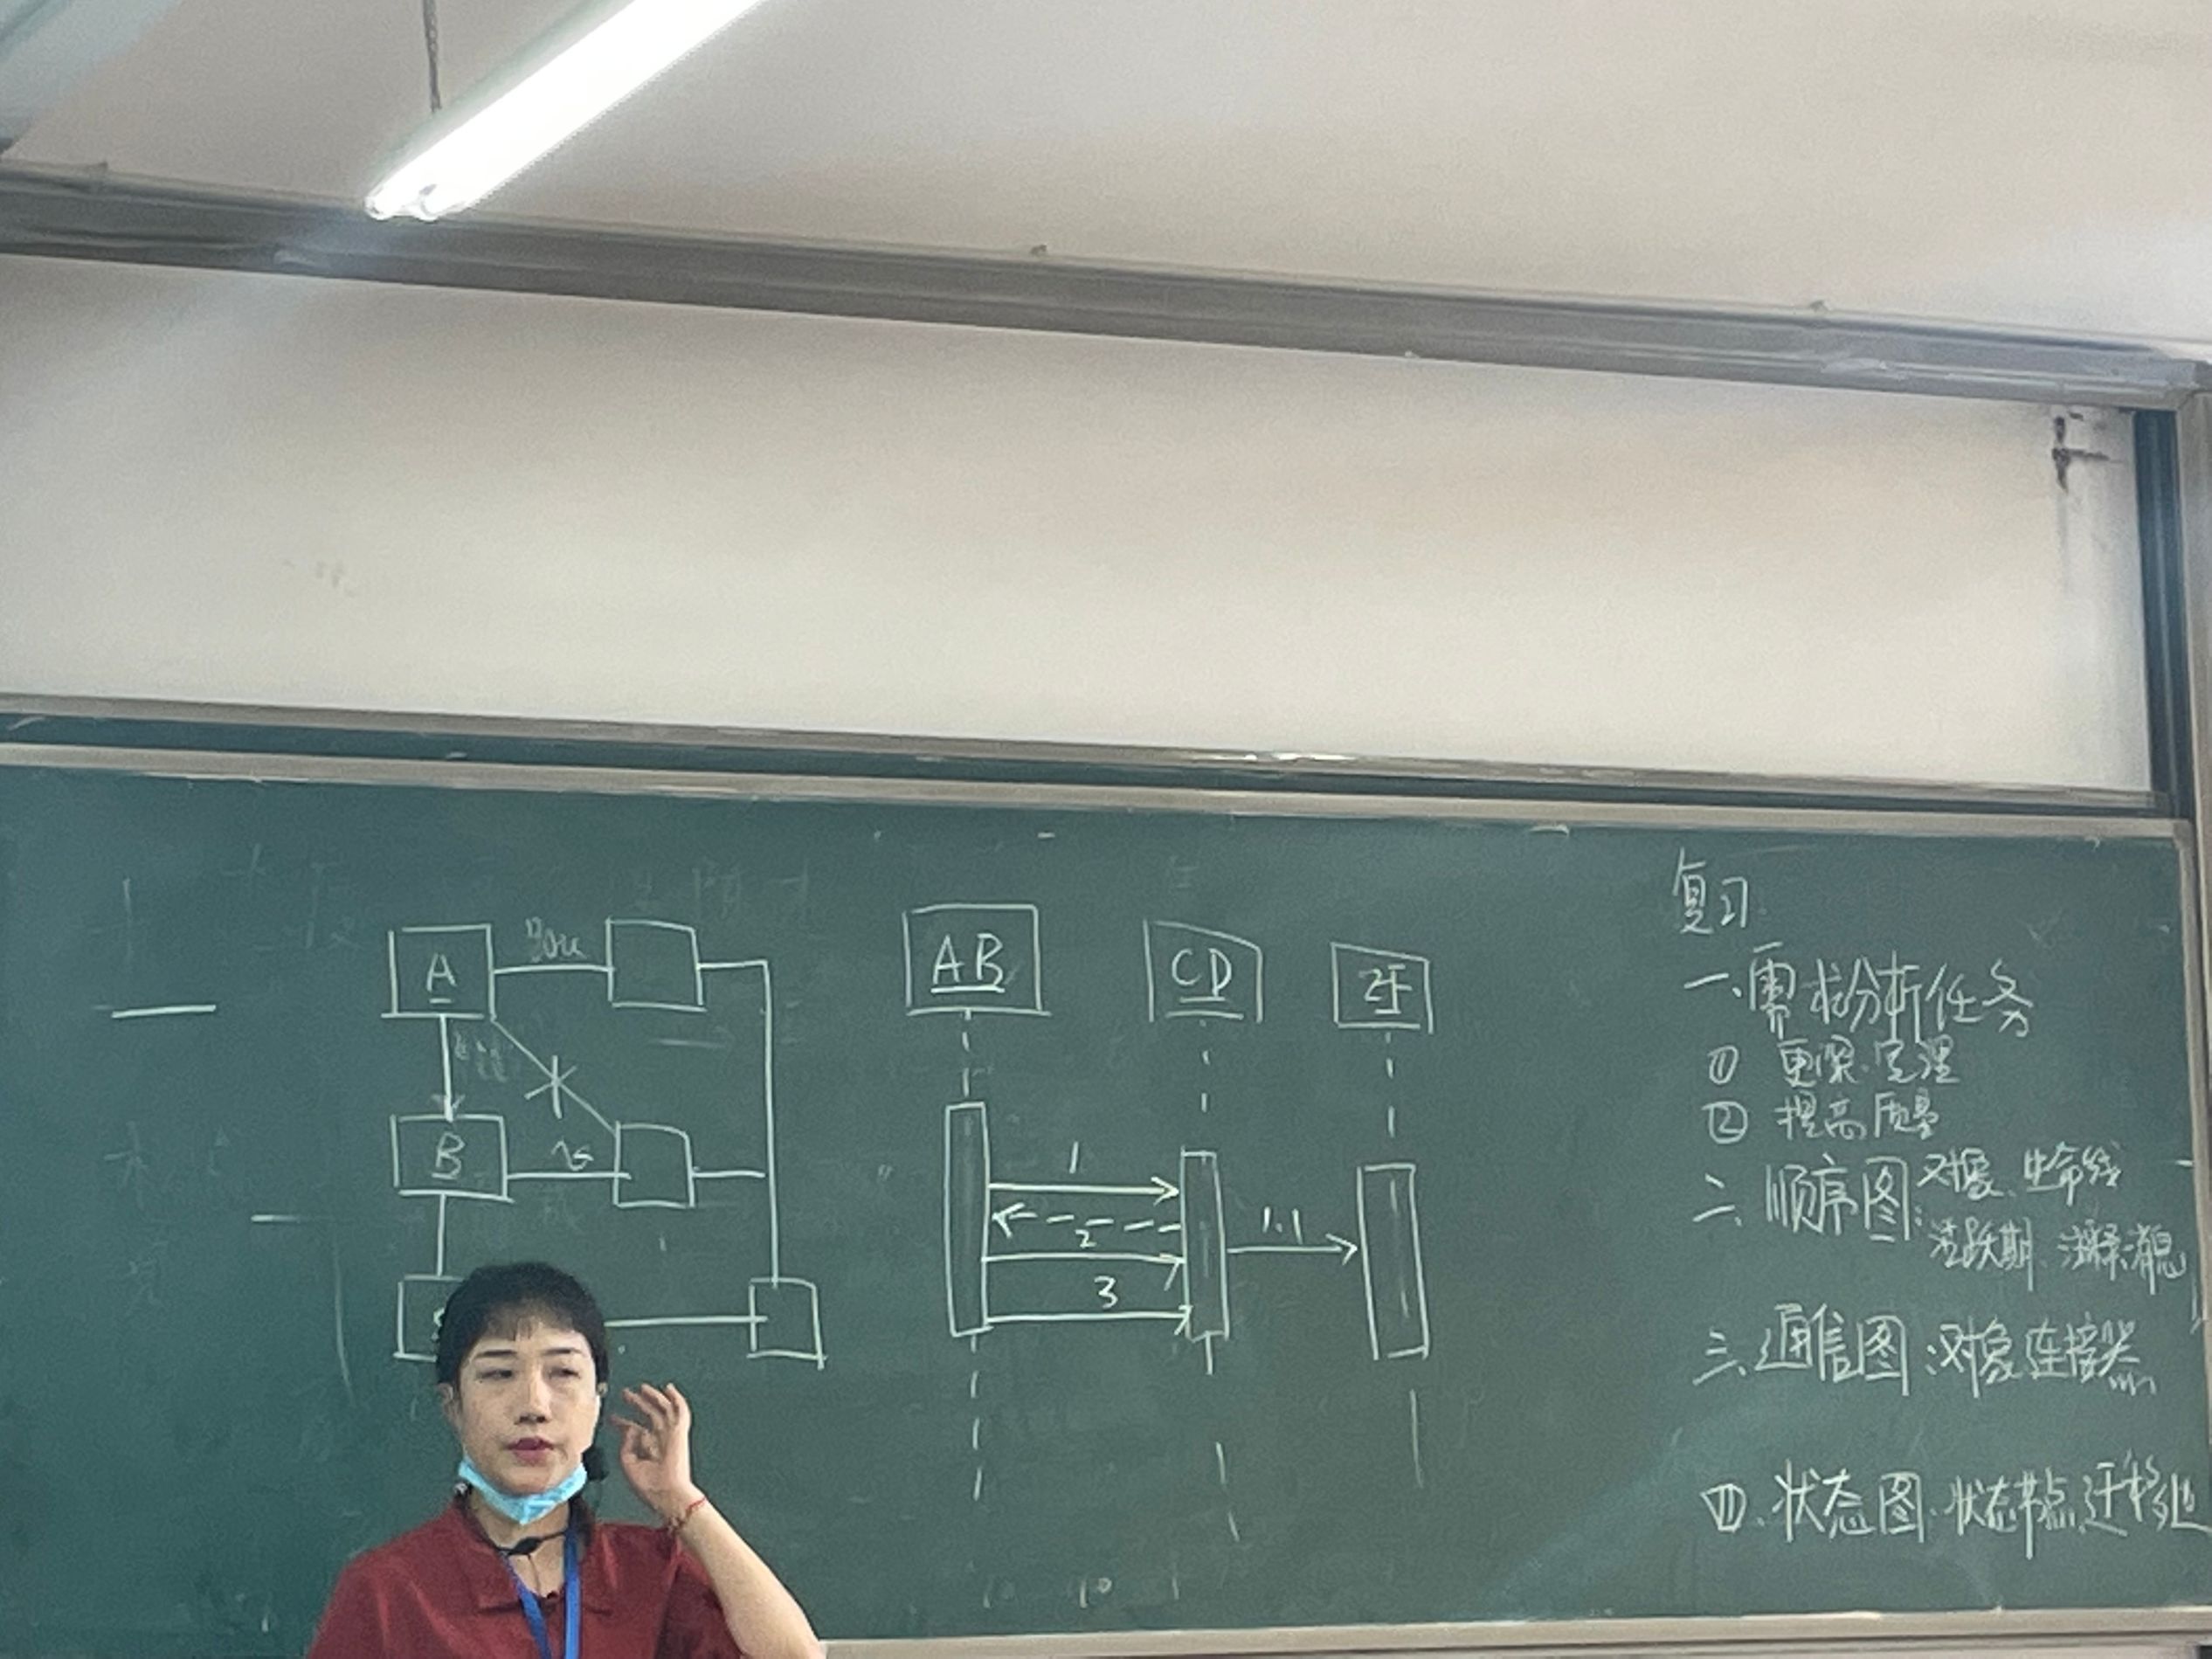 A
B
AB
CD
1
2
1.1
3
复习
一、需求分析任务
① 更深.定理
② 提高质量
二、顺序图:对象、生命线
活跃期、注释、消息
三、通信图:对象、连接器
四、状态图.状态节点、迁移边